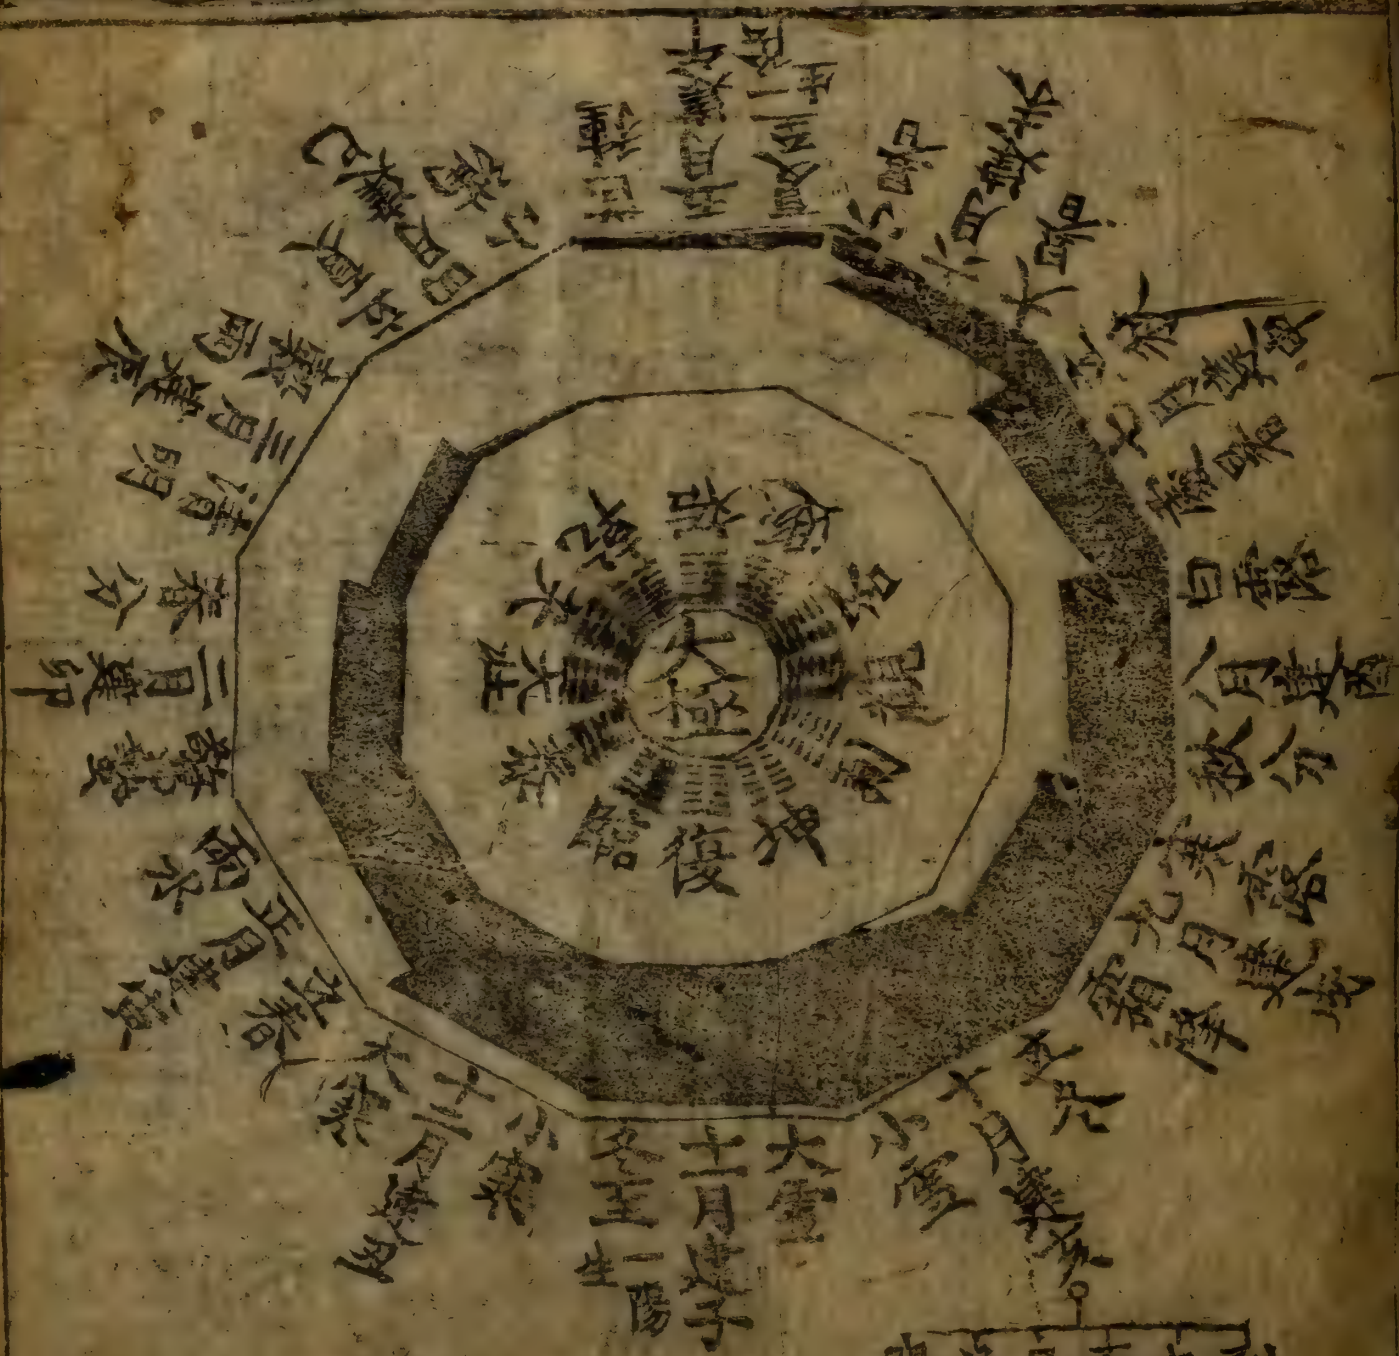 大極
復
臨
泰
大壯
夬
乾
姤
遯
否
觀
剝
坤
大雪
十一月建子
冬至
一陽生
小寒
十二月建丑
大寒
立春
正月建寅
雨水
驚蟄
二月建卯
春分
清明
三月建辰
穀雨
立夏
四月建巳
小滿
芒種
五月建午
夏至
一陰生
小暑
六月建未
大暑
立秋
七月建申
處暑
白露
八月建酉
秋分
寒露
九月建戌
霜降
立冬
十月建亥
小雪